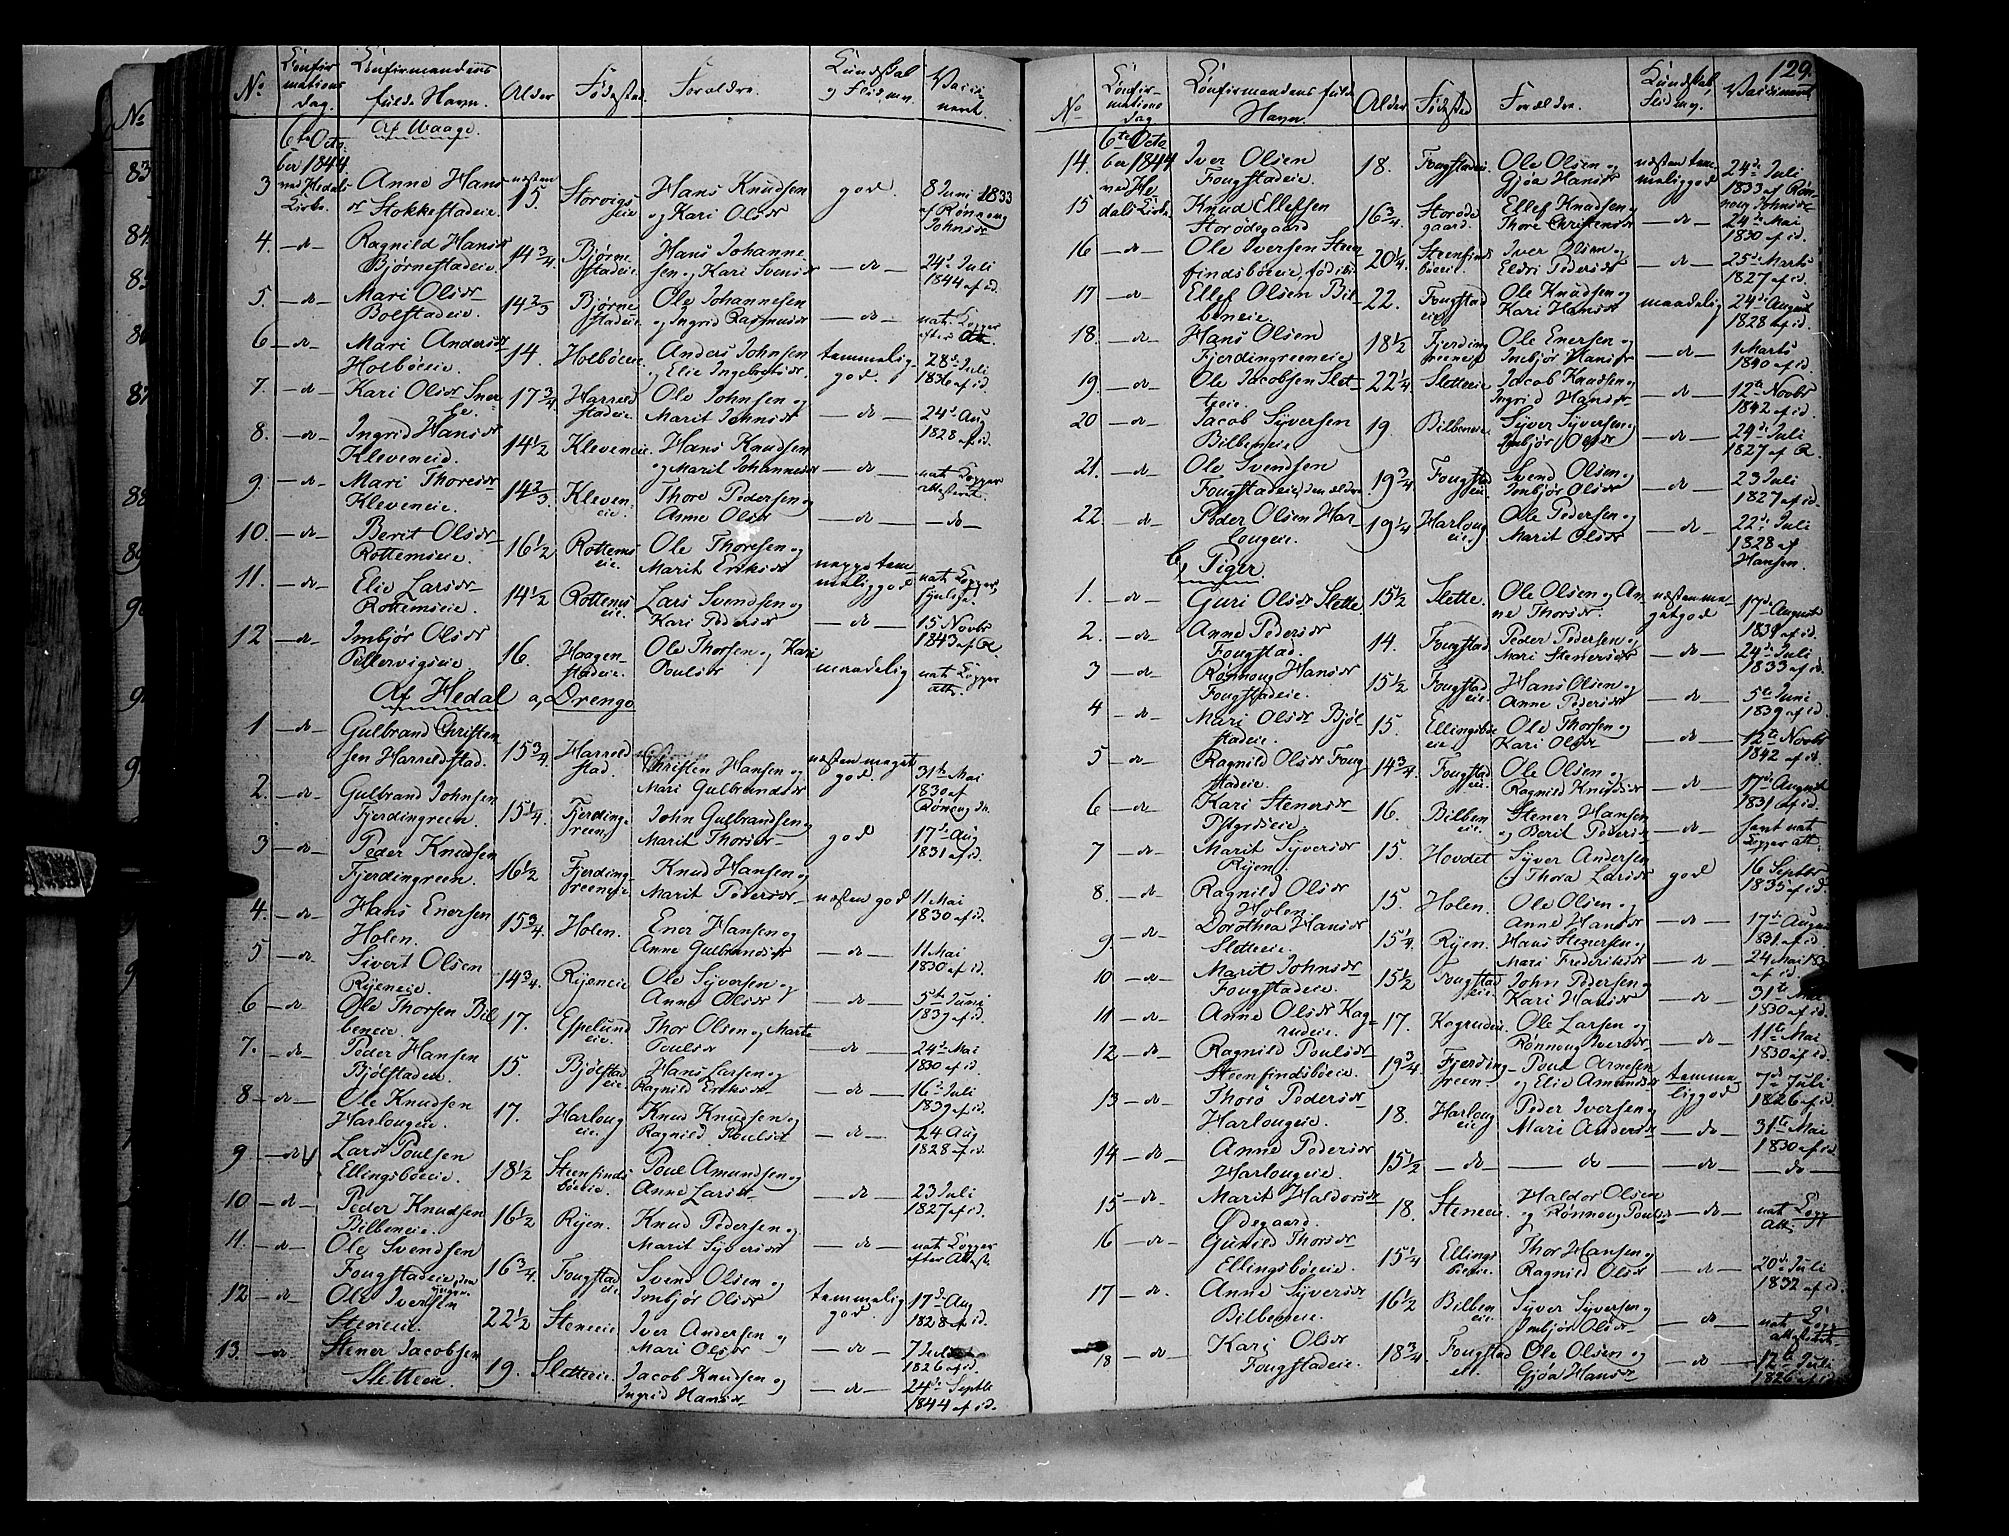 No
Confir
mations
dag.
Confirmandens
fulde Navn.
Alder
Fødested.
Forældre.
Kundskab
og Flid m.v.
Vacci
neret.
6te Octo
ber 1844
ved Hedals
Kirke.
Af Waage.
3
Anne Hans
dr Stokkestadeie.
næsten
15
Storvigs
eie
Hans Knudsen
og Kari Olsdr
god.
8 Juni 1833
af Rønnoug
Johnsdr
4. -do-
Ragnild Hansdr
Bjørnestadeie.
14 3/4
Bjørne
stadeie.
Hans Johanne
sen og Kari Svensdr
-do-
24de Juli
1844 af id.
5. -do-
Mari Olsdr
Bolstadeie.
14 2/3
Bjørne
stadeie.
Ole Johannesen
og Ingrid Rasmusdr
-do-
nat. Kopper
efter Att.
6 -do-
Mari Andersdr
Holbøeie.
14.
Holbøeie.
Anders Johnsen
og Elie Ingebretsdr.
temmelig
god.
28de Juli
1836 af id.
7. -do-
Kari Olsdr Sner
le.
17 3/4
Harreld
stadeie.
Ole Johnsen og
Marit Johnsdr
-do-
24de Aug
1828 af id.
8. -do-
Ingrid Hansdr
Kleveneie.
14 1/2
Kleveneie.
Hans Knudsen
og Marit Johannesdr
-do-
nat Kopper
attesteret.
9. -do-
Mari Thoresdr
Kleveneie.
14 2/3
Kleven-
eie.
Thore Pedersen og
Anne Olsdr
-do-
-do-
10. -do-
Berit Olsdr
Rottemseie.
16 1/2
Rottems
eie.
Ole Thoresen og
Marit Eriksdr
neppe tem
meliggod
nat. Kopper
11. -do-
Elie Larsdr
Rottemseie.
14 1/2
Rottems
eie.
Lars Svendsen og
Kari Pedersdr
-do-
15 Novbr
1843 af R.
12 -do-
Imbjør Olsdr
Pillervigseie
16.
Haagen-
stadeie.
Ole Thorsen og Kari
Poulsdr
maadelig
nat. Kopper
att.
Af Hedal a, Drenge
1 -do-
Gulbrand Christen
sen Harreldstad.
15 3/4
Harreld
stad.
Christen Hansen og
Mari Gulbrandsdr
næsten meget
god.
31te Mai
1830 af
Rønnoug Jdr.
2. -do-
Gulbrand Johnsen
Fjerdingreen.
15 1/4
Fjerding-
green.
John Gulbrandsen og
Marit Thorsdr
god
17de Aug
1831 af id.
3 -do-
Peder Knudsen
Fjerdingreen.
16 1/2
Fjerding-
greeneie
Knud Hansen og
Marit Pedersdr
næsten god
11 Mai
1830 af id.
4. -do-
Hans Enersen
Holen.
15 3/4.
Holen.
Ener Hansen og
Anne Gulbrandsdr
-do-
11 Mai
1830 af id.
5 -do-
Sivert Olsen
Ryeneie.
14 3/4.
Ryeneie
Ole Syversen og
Anne Olsdr
-do-
5te Juni
1839 af id.
6 -do-
Ole Thorsen Bil
beneie.
17.
Espelund
eie.
Thor Olsen og Marte
Poulsdr
-do-
24de Mai
1830 af id.
7. -do-
Peder Hansen
Bjølstadeie.
15.
Bjølstad
eie.
Hans Larsen og
Ragnild Eriksdr
-do-
16de Juli
1839 af id.
8 -do-
Ole Knudsen
Harlougeie.
17.
Harloug
eie.
Knud Knudsen og
Ragnild Poulsdr
-do-
24 Aug
1828 af id.
9 -do-
Lars Poulsen
Ellingsbøeie.
18 1/2
Steenfinds
bøeie.
Poul Amundsen og
Anne Larsdr
-do-
23 Juli
1827 af id.
10 -do-
Peder Knudsen
Bilbeneie.
16 1/2
Ryen.
Knud Pedersen og
Marit Syversdr
-do-
nat. Kopper
efter Attest.
11. -do-
Ole Svendsen
Fougstadeie, den
yngre.
16 3/4.
Fougstad
eie.
Svend Olsen og
Imbjør Olsdr
temmelig
god.
17de Aug
1828 af id.
12 -do-
Ole Iversen
Steneie.
22 1/2
Steneie
Iver Andersen og
Mari Olsdr
-do-
7 Juli
1826 af id.
13. -do-
Stener Jacobsen
Sletteeie.
19.
Sletteeie.
Jacob Knudsen og
Ingrid Hansdr
-do-
24de Septbr
1844 af id.
129.
No
Confir-
mations
dag
Confirmandens fulde
Navn.
Alder.
Fødested
Forældre.
Kundskab,
Flid m.v.
Vaccineret
6te Octo
ber 1844
ved He
dals Kirke
14.
Iver Olsen
Fougstadeie.
18.
Fougstadeie.
Ole Olsen og
Gjøa Hansdr
næsten tem
meliggod
24de Juli
1833 af Røn
noug Johnsdr
15
Knud Ellefsen
Storødegaard
16 3/4.
Storøde
gaard.
Ellef Knudsen og
Thore Christensdr
-do-
24de Mai
1830 af id.
16 -do-
Ole Iversen Steen
findsbøeie, fød ibid.
20 1/4.
Steenfinds
bøeie.
Iver Olsen og
Eldri Pedersdr
-do-
25de Marts
1827 af id.
17 -do-
Ellef Olsen Bil
beneie.
22.
Fougstad
eie
Ole Knudsen og
Kari Hansdr
maadelig
24de August
1828 af id.
18. -do-
Hans Olsen
Fjerdingreeneie.
18 1/2
Fjerding
greeneie
Ole Enersen og
Imbjør Hansdr
-do-
1 Marts
1840 af id.
19. -do-
Ole Jacobsen Slet-
teeie.
22 1/4
Sletteeie
Jacob Knudsen og
Ingrid Hansdr
-do-
12te Novbr
1842 af id.
20 -do-
Jacob Syversen
Bilbeneie
19.
Bilbeneie
Syver Syversen og
Imbjør Olsdr
-do-
24de Juli
1827 af R.
21. -do-
Ole Svendsen
Fougstadeie, den ældre.
19 3/4
Fougstad
eie
Svend Olsen og
Imbjør Olsdr
-do-
23 Juli
1827 af id.
22 -do-
Peder Olsen Har
lougeie.
19 1/4
Harloug
eie.
Ole Pedersen og
Marit Olsdr
-do-
22de Juli
1828 af
Hansen.
b, Piger.
1. -do-
Guri Olsdr Slette
15 1/2
Slette.
Ole Olsen og An-
ne Thorsdr.
næsten me-
get god
17de August
1839 af id.
2. -do-
Anne Pedersdr
Fougstad.
14.
Fougstad
Peder Pedersen og
Mari Stenersdr
-do-
24de Juli
1833 af id.
3 -do-
Rønnoug Hansdr
Fougstadeie.
15 1/2
Fougstad
eie.
Hans Olsen og
Anne Pedersdr
-do-
5te Juni
1839 af id.
4 -do-
Mari Olsdr Bjøl
stadeie.
15.
Ellingsbø
eie.
Ole Thorsen og
Kari Olsdr
-do-
12te Novbr
1842 af id.
5 -do-
Ragnild Olsdr Foug
stadeie.
14 3/4.
Fougstad
eie.
Ole Olsen og
Ragnild Knudsdr
-do-
17de August
1831 af id.
6 -do-
Kari Stenersdr
16.
Bilben
eie.
Stener Hansen
og Berit Pedersdr
-do-
havt nat.
Kopper att.
7 -do-
Marit Syversdr
Ryen.
15.
Hovdet
Syver Andersen
og Thora Larsdr
god
16 Septbr
1835 af id.
8. -do-
Ragnild Olsdr
Holen.
15.
Holen.
Ole Olsen og
Anne Hansdr
-do-
17de August
1831 af id.
9 -do-
Dorothea Hansdr
Sletteeie.
15 1/4
Ryen.
Hans Stenersen og
Mari Frederiksdr
-do-
24 Mai 183
af id.
10 -do-
Marit Johnsdr
Fougstadeie.
15 1/2
Fougstad
eie.
John Pedersen og
Kari Hansdr
-do-
31te Mai
1830 af id.
11 -do-
Anne Olsdr Kag-
rudeie.
17.
Kagrudeie.
Ole Larsen og
Rønnoug Iversdr
-do-
11te Mai
1830 af id.
12 -do-
Ragnild Poulsdr
Steenfindsbøeie.
19 3/4
Fjerding-
green
Poul Arnesen
og Elie Amundsdr
temme
liggod
7de Juli
1826 af id.
13 -do-
Thore Pedersdr
Harlougeie.
18.
Harloug
eie
Peder Iversen og
Mari Andersdr
-do-
31te Mai
1830 af id.
14 -do-
Anne Pedersdr
Harlougeie.
15 1/2
-do-
-do-
-do-
-do-
15 -do-
Marit Haldorsdr
Ødegaard.
18.
Steneie.
Haldor Olsen
og Rønnoug Poulsdr
-do-
nat. Kopp.
Att.
16 -do-
Gunild Thorsdr
Ellingsbøeie.
15 1/4
Ellings
bøeie.
Thor Hansen og
Ragnild Olsdr
-do-
20de Juli
1832 af id.
17 -do-
Anne Syversdr
Bilbeneie.
16 1/2
Bilben
eie.
Syver Syversen og
Imbjør Olsdr
-do-
nat. Kopp.
attesteret
18 -do-
Kari Olsdr
Fougstadeie.
18 3/4
Fougstad
eie.
Ole Olsen og
Gjøa Hansdr
-do-
12te Juli
1826 af id.